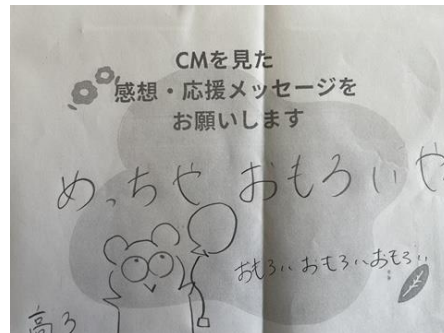 CMを見た
感想・応援メッセージを
お願いします
めっちゃ おもろいや
おもろい おもろい おもろい
高3